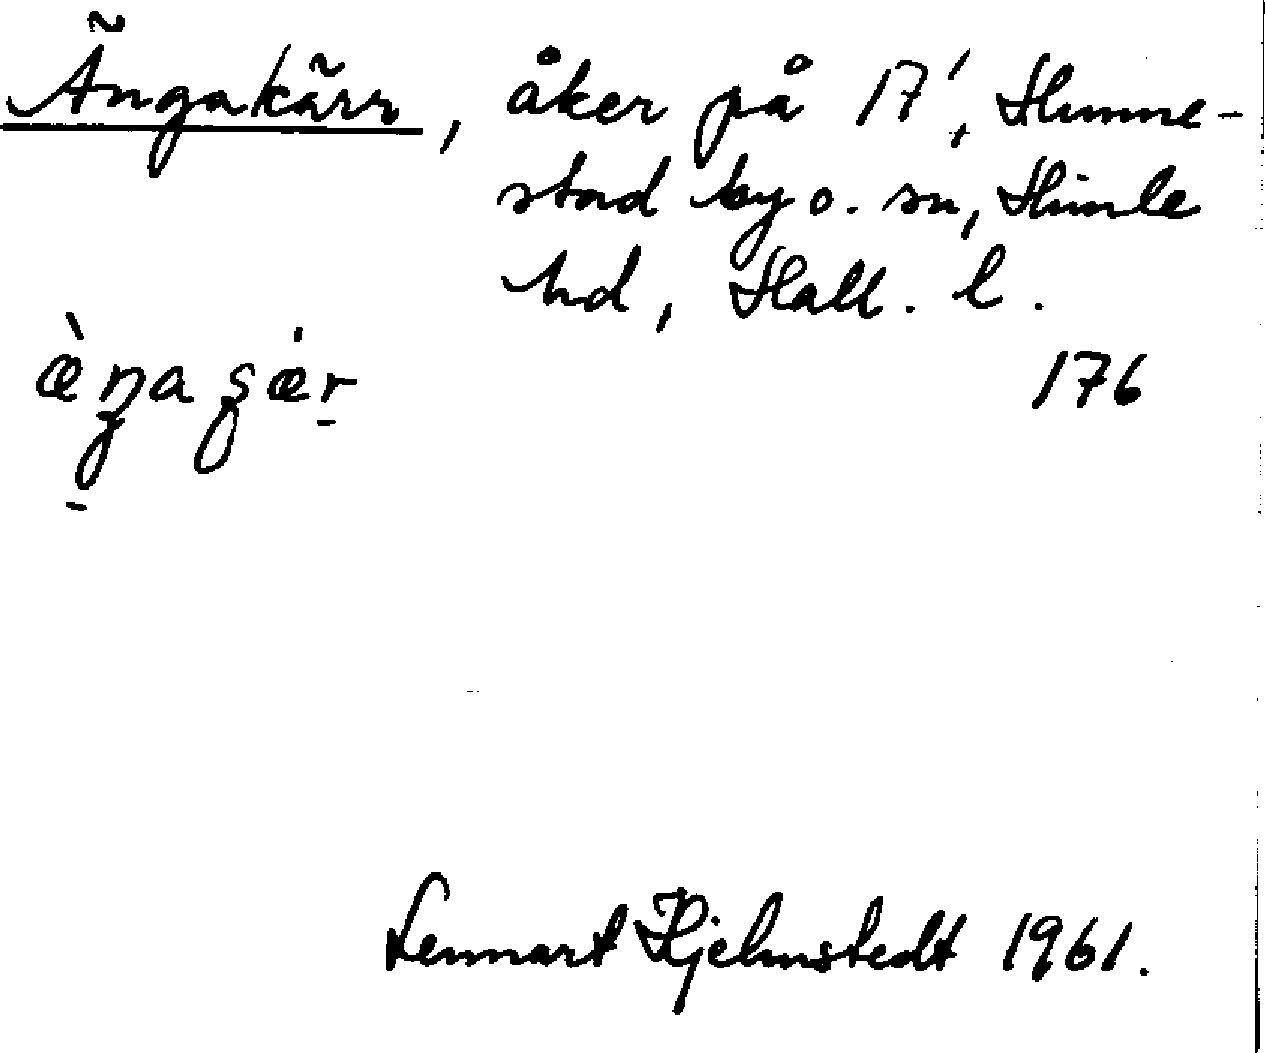 Ängakärr, åker på 17¹, Hunne-
stad by o. sn, Himle
hd, Hall. l.
æ̀ŋa ȿǽr̠
176
Lennart Hjelmstedt 1961.